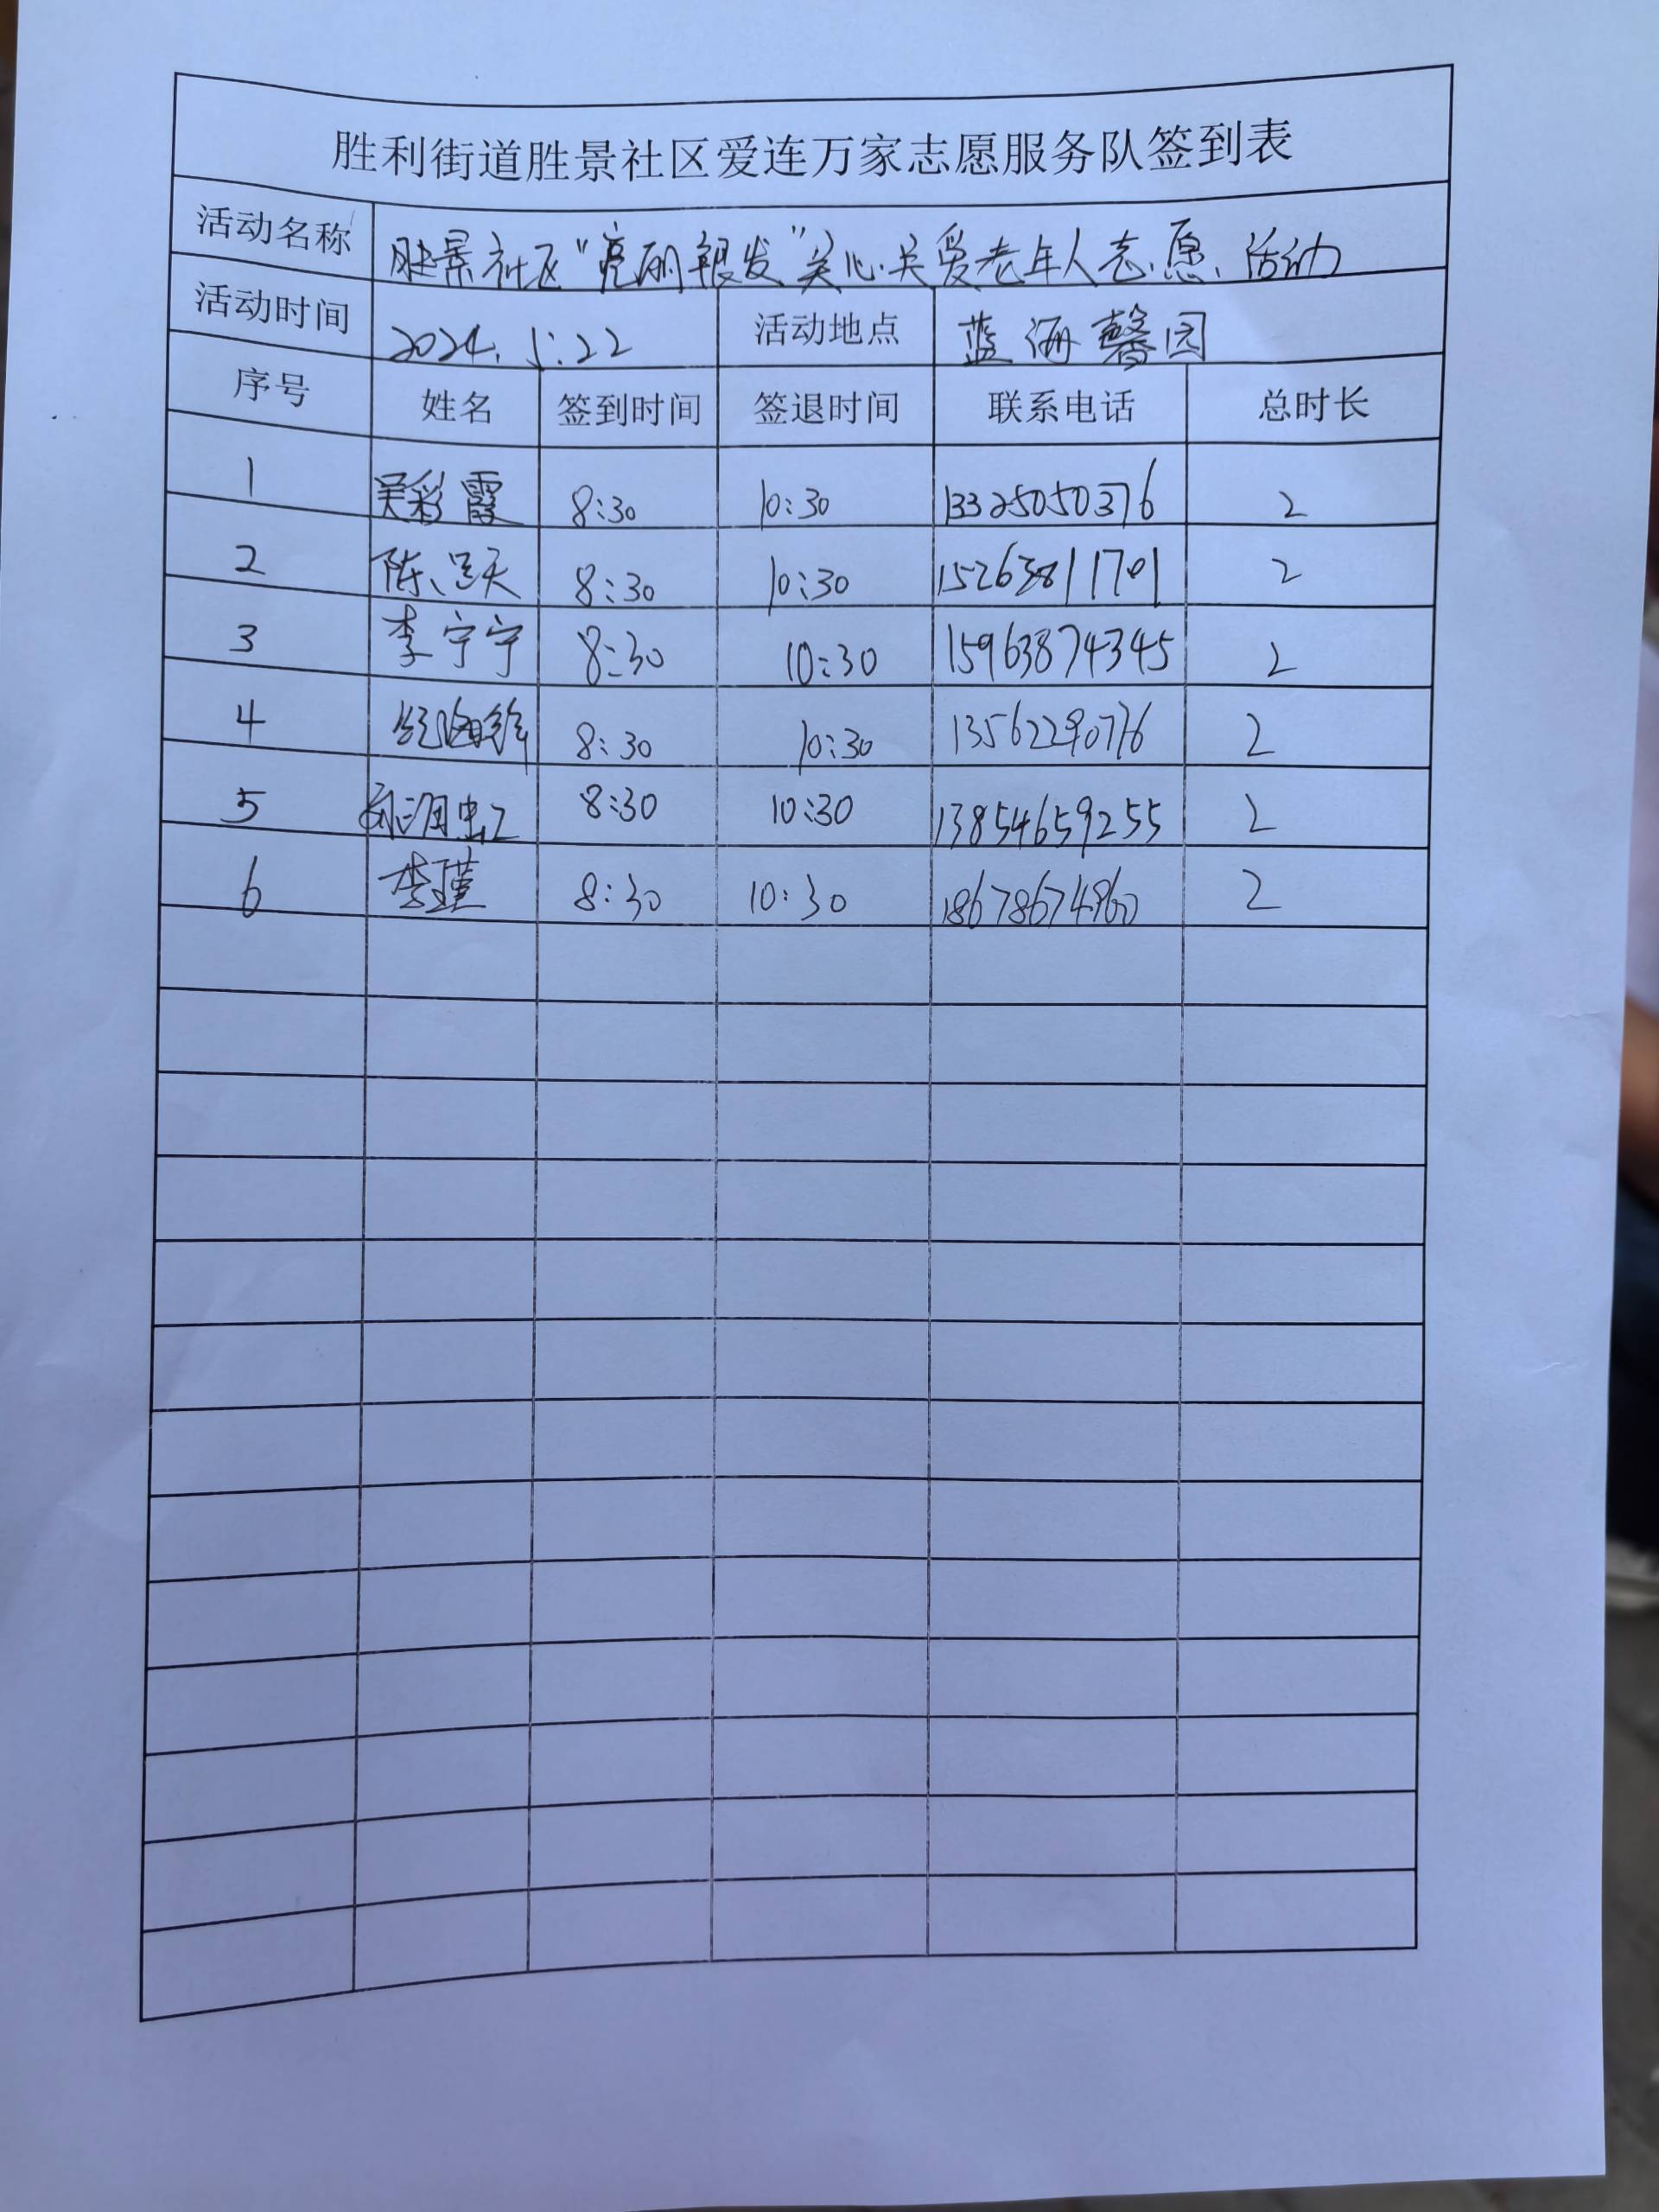 胜利街道胜景社区爱连万家志愿服务队签到表
活动名称 胜景社区“亮丽银发”关心关爱老年人志愿活动
活动时间 2024.5.22 活动地点 蓝海馨园
序号 姓名 签到时间 签退时间 联系电话 总时长
1 吴彩霞 8:30 10:30 13325050376 2
2 8:30 10:30 2
3 李宁宁 8:30 10:30 15963874345 2
4 8:30 10:30 13562290776 2
5 8:30 10:30 13854659255 2
6 李瑾 8:30 10:30 18678674860 2